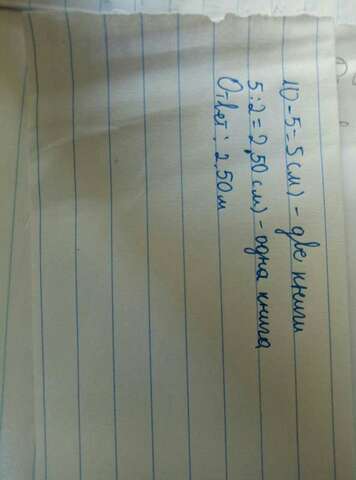 10-5=5(м) - две книги
5:2=2,50(м) - одна книга
Ответ: 2,50 м